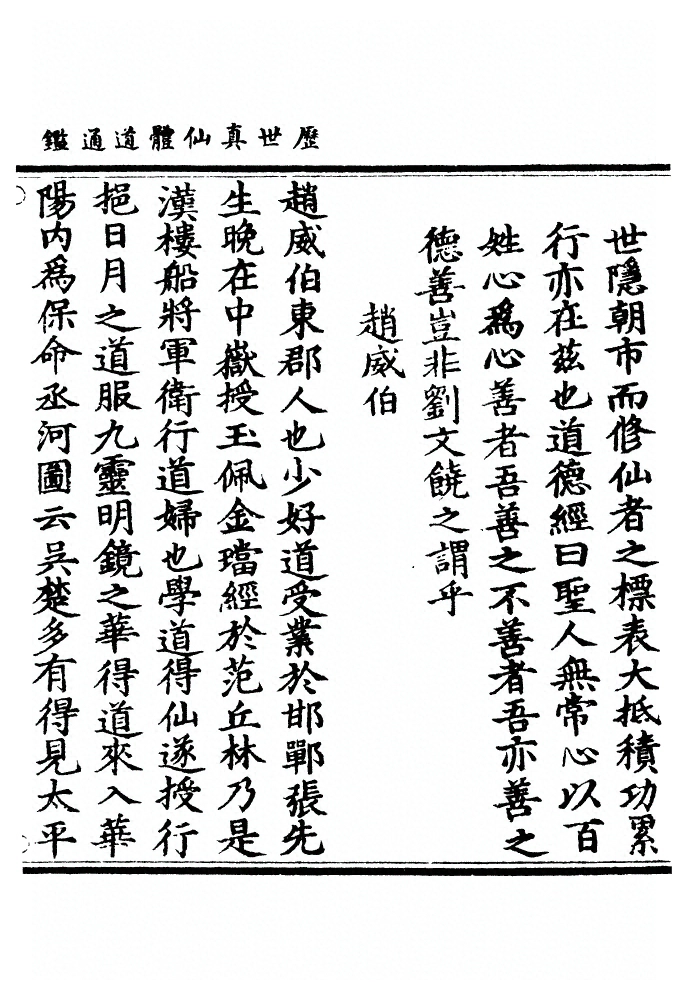 歷世真仙體道通鑑
世隱朝市而修仙者之標表大抵積功累
行亦在茲也道德經曰聖人無常心以百
姓心為心善者吾善之不善者吾亦善之
德善豈非劉文饒之謂乎
趙威伯
趙威伯東郡人也少好道受業於邯鄲張先
生晚在中嶽授玉佩金璫經於范丘林乃是
漢樓船將軍衛行道婦也學道得仙遂授行
挹日月之道服九靈明鏡之華得道來入華
陽內為保命丞河圖云吳楚多有得見太平